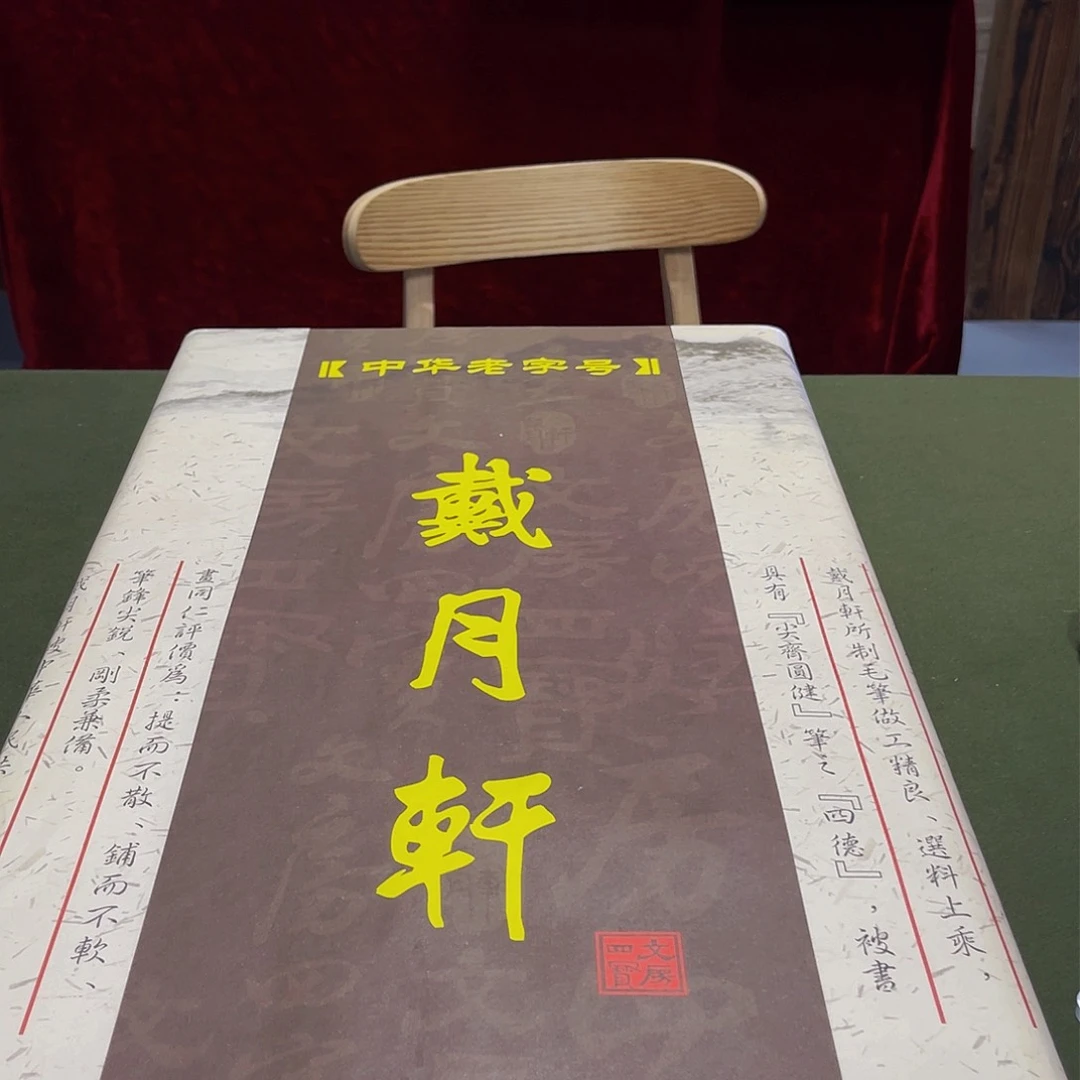 【中华老字号】
戴月軒
文房
戴月軒所制毛筆做工精良、選料上乘，
具有『尖齊圓健』筆之『四德』，被書
畫同仁評價爲：提而不散、鋪而不軟、
筆鋒尖鋭、剛柔兼備。